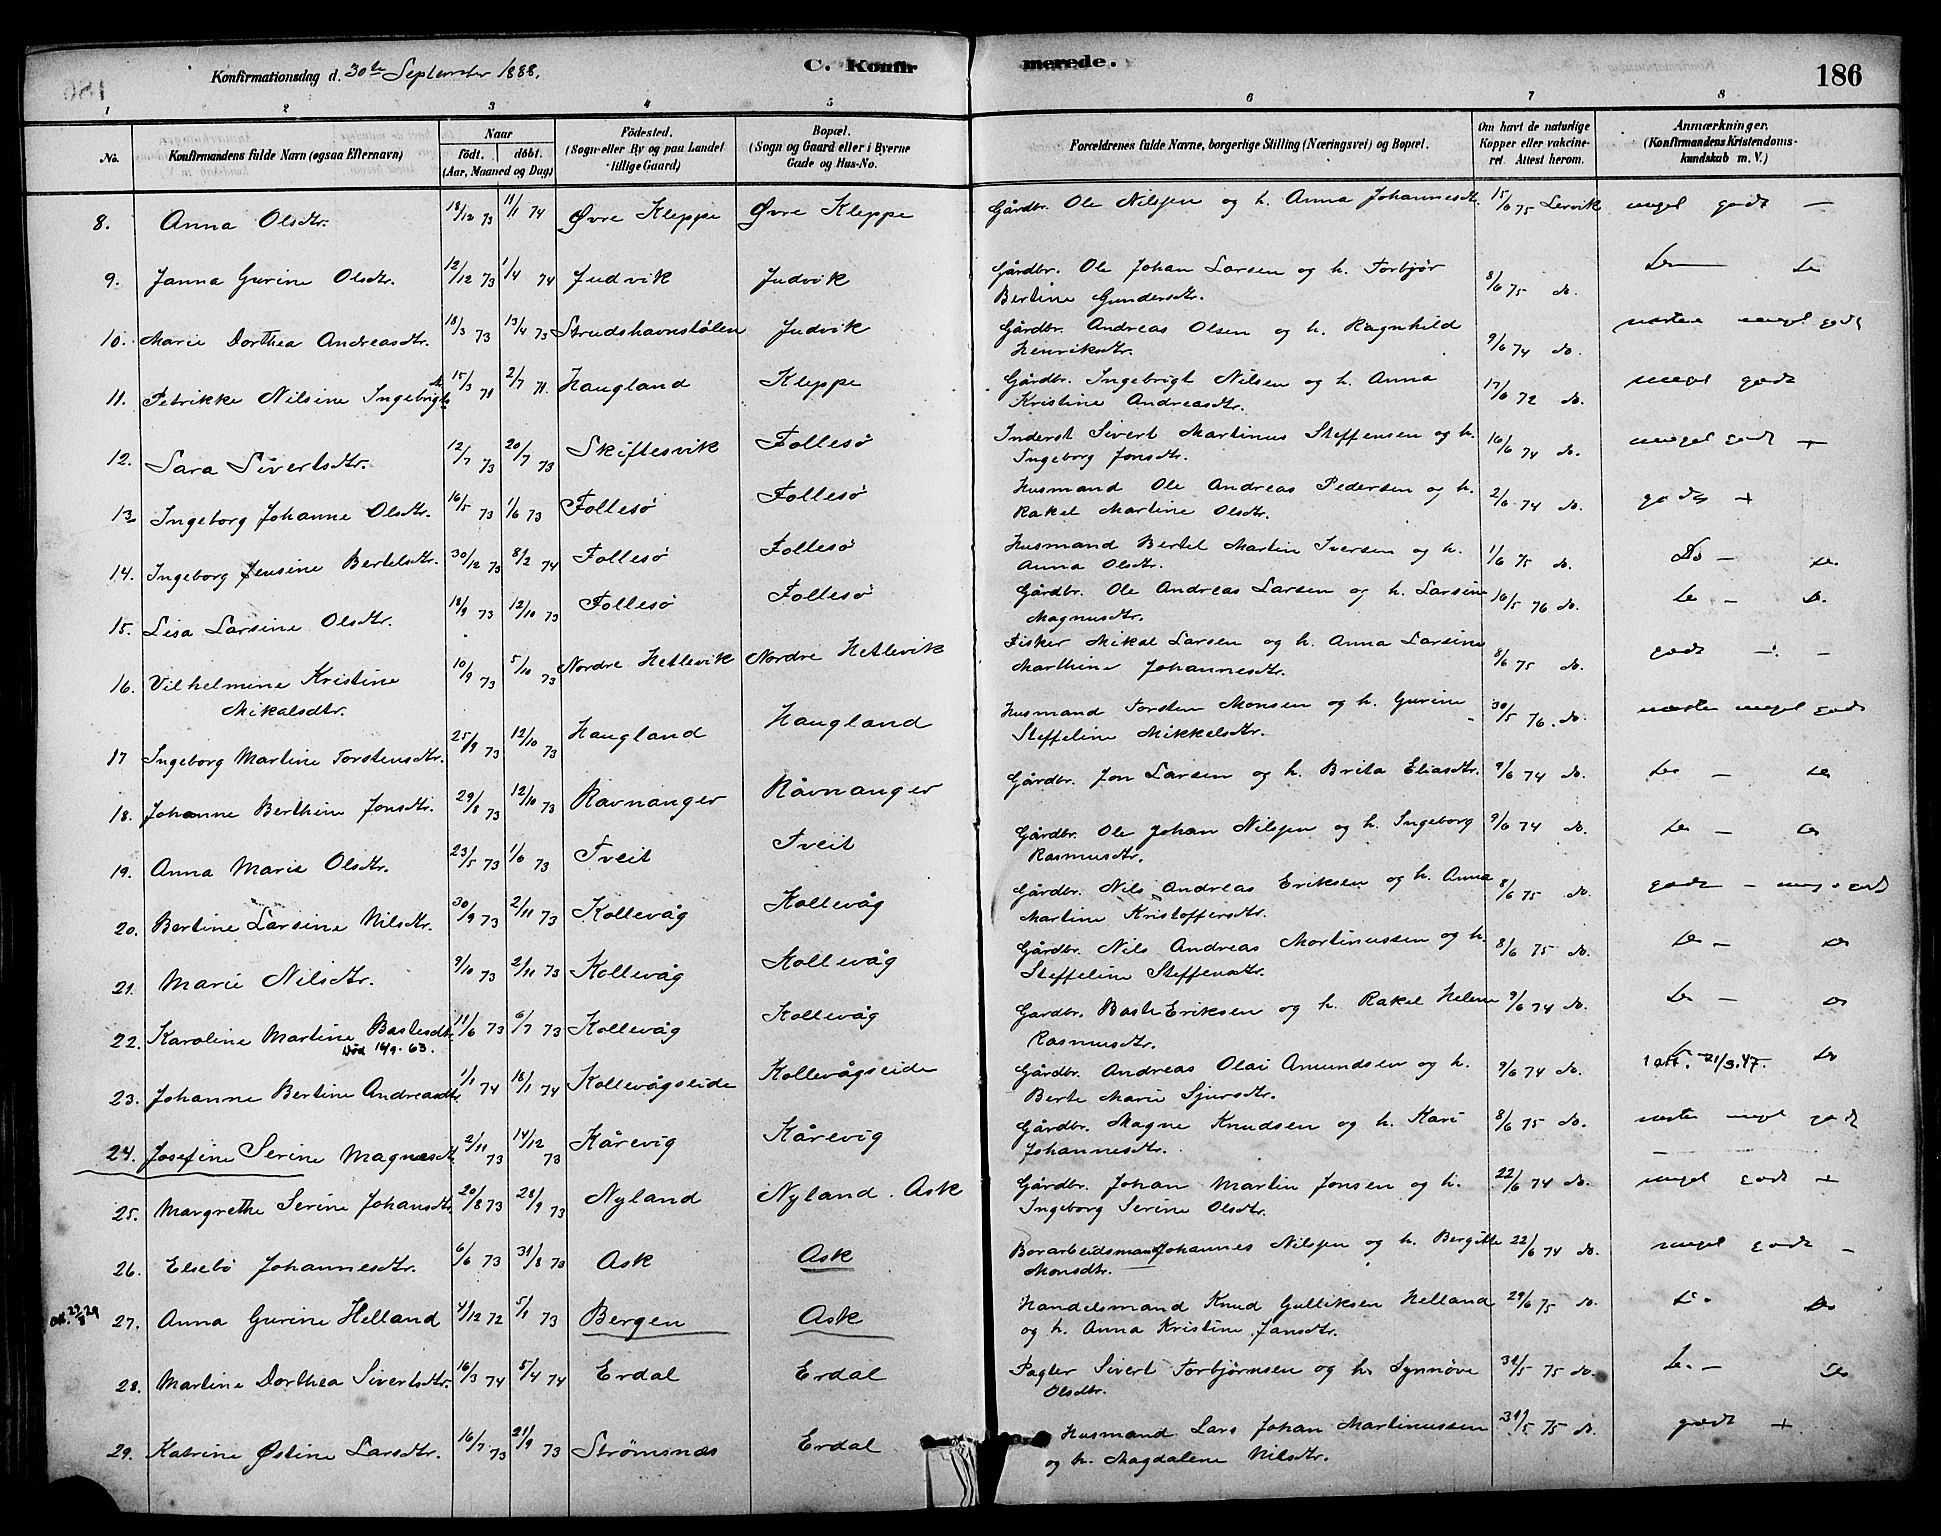 Konfirmationsdag d. 30te September 1888.
C. Konfirmerede.
186
1 2 3 4 5 6 7 8
No. Konfirmandens fulde Navn (ogsaa Efternavn) Naar født. døbt. (Aar, Maaned og Dag) Fødested. (Sogn eller By og paa Landet tillige Gaard) Bopæl. (Sogn og Gaard eller i Byerne Gade og Hus-No. Forældrenes fulde Navne, borgerlige Stilling (Næringsvei) og Bopæl. Om havt de naturlige Kopper eller vakcineret. Attest herom. Anmærkninger. (Konfirmandens Kristendomskundskab m. V.)
8. Anna Olsdtr. 18/12 73 11/1 74 Øvre Kleppe Øvre Kleppe Gårdbr. Ole Nilsen og h. Anna Johannesdt. 15/6 75 Lervik meget godt —
9. Janna Gurine Olsdtr. 12/12 73 1/4 74 Judvik Judvik Gårdbr. Ole Johan Larsen og h. Torbjør
Bertine Gundersdtr. 8/6 75 do. Do — Do
10. Marie Dorthea Andreasdtr. 18/3 73 13/4 73 Strudshavnstølen Judvik Gårdbr. Andreas Olsen og h. Ragnhild
Henriksdtr. 9/6 74 do. næsten meget godt
11. Petrikke Nilsine Ingebrigtsdtr 15/3 71 2/7 71. Haugland Kleppe Gårdbr. Ingebrigt Nilsen og h. Anna
Kristine Andreasdtr. 17/6 72 do. meget godt
12. Sara Sivertsdtr. 12/7 73 20/7 73 Skiftesvik Follesø Inderst Sivert Martinus Steffensen og h.
Ingeborg Jonsdtr. 16/6 74 do. meget godt +
13. Ingeborg Johanne Olsdtr. 16/5 73 1/6 73 Follesø Follesø Husmand Ole Andreas Pedersen og h.
Rakel Martine Olsdtr. 2/6 74 do. godt +
14. Ingeborg Jensine Bertelsdtr. 30/12 73 8/2 74 Follesø Follesø Husmand Bertel Martin Iversen og h.
Anna Olsdtr. 1/6 75 do. Do — Do
15. Lisa Larsine Olsdtr. 18/9 73 12/10 73 Follesø Follesø Gårdbr. Ole Andreas Larsen og h. Larsine
Magnusdtr. 16/5 76 do. Do — Do.
16. Vilhelmine Kristine
Mikalsdtr. 10/9 73 5/10 73 Nordre Hetlevik Nordre Hetlevik Fisker Mikal Larsen og h. Anna Larsine
Marthine Johannesdtr. 8/6 75 do. godt —
17 Ingeborg Martine Torstensdtr. 25/9 73 12/10 73 Haugland Haugland Husmand Torsten Monsen og h. Gurine
Steffeline Mikkelsdtr. 30/5 76. do. næsten meget godt
18. Johanne Berthine Jonsdtr. 29/8 73 12/10 73 Ravnanger Råvnanger Gårdbr. Jon Larsen og h. Brita Eliasdtr. 9/6 74 do. Do — Do
19. Anna Marie Olsdtr. 23/5 73 1/6 73 Tveit Tveit Gårdbr. Ole Johan Nilsen og h. Ingeborg
Rasmusdtr. 9/6 74 do. Do — Do
20. Bertine Larsine Nilsdtr. 30/9 73 2/11 73 Kollevåg Kollevåg Gårdbr. Nils Andreas Eriksen og h. Anna
Martine Kristoffersdtr. 8/6 75 do. godt — meget godt
21. Marie Nilsdtr. 9/10 73 2/11 73 Kollevåg Kollevåg Gårdbr. Nils Andreas Martinussen og h.
Steffeline Steffensdtr. 8/6 75 do. Do — Do
22. Karoline Martine Bastesdtr. 11/6 73 6/7 73 Kollevåg Kollevåg Gardbr. Baste Eriksen og h. Rakel Helene
Død 16/9-63. Rasmusdtr. 9/6 74 do. Do — Do
23. Johanne Bertine Andreasdtr 1/1 74 18/1 74 Kollevågseide Kollevågseide Gårdbr. Andreas Olai Amundsen og h.
Berte Marie Sjursdtr. 9/6 74 do. 1 att. 21/3.47. Do
24. Josefine Serine Magnesdt. 2/11 73 14/12 73 Kårevig Kårevig Gårdbr. Magne Knudsen og h. Kari
Johannesdtr. 8/6 75 do. næsten meget godt
25. Margrethe Serine Johansdtr. 20/8 73 28/9 73 Nyland Nyland. Ask Gårdbr. Johan Martin Jonsen og h.
Ingeborg Serine Olsdtr. 22/6 74 do. meget godt +
26. Elsebø Johannesdtr. 6/6 73 31/8 73 Ask Ask Borarbeidsmand Johannes Nilsen og h. Bergitte
Monsdtr. 22/6 74 do. meget godt —
27. Anna Gurine Helland 4/12 72 5/1 73 Bergen Ask Handelsmand Knud Gulliksen Helland
og h. Anna Kristine Jansdtr. 29/6 75 do. Do Do
28. Martine Dorthea Sivertsdtr. 16/3 74 5/4 74 Erdal Erdal Pagter Sivert Torbjørnsen og h. Synnøve
Olsdtr. 31/5 75 do. Do — Do
29. Katrine Østine Larsdtr. 16/7 73 21/9 73 Strømsnæs Erdal Husmand Lars Johan Martinussen
og h. Magdalene Nilsdtr. 31/5 75 do. godt +